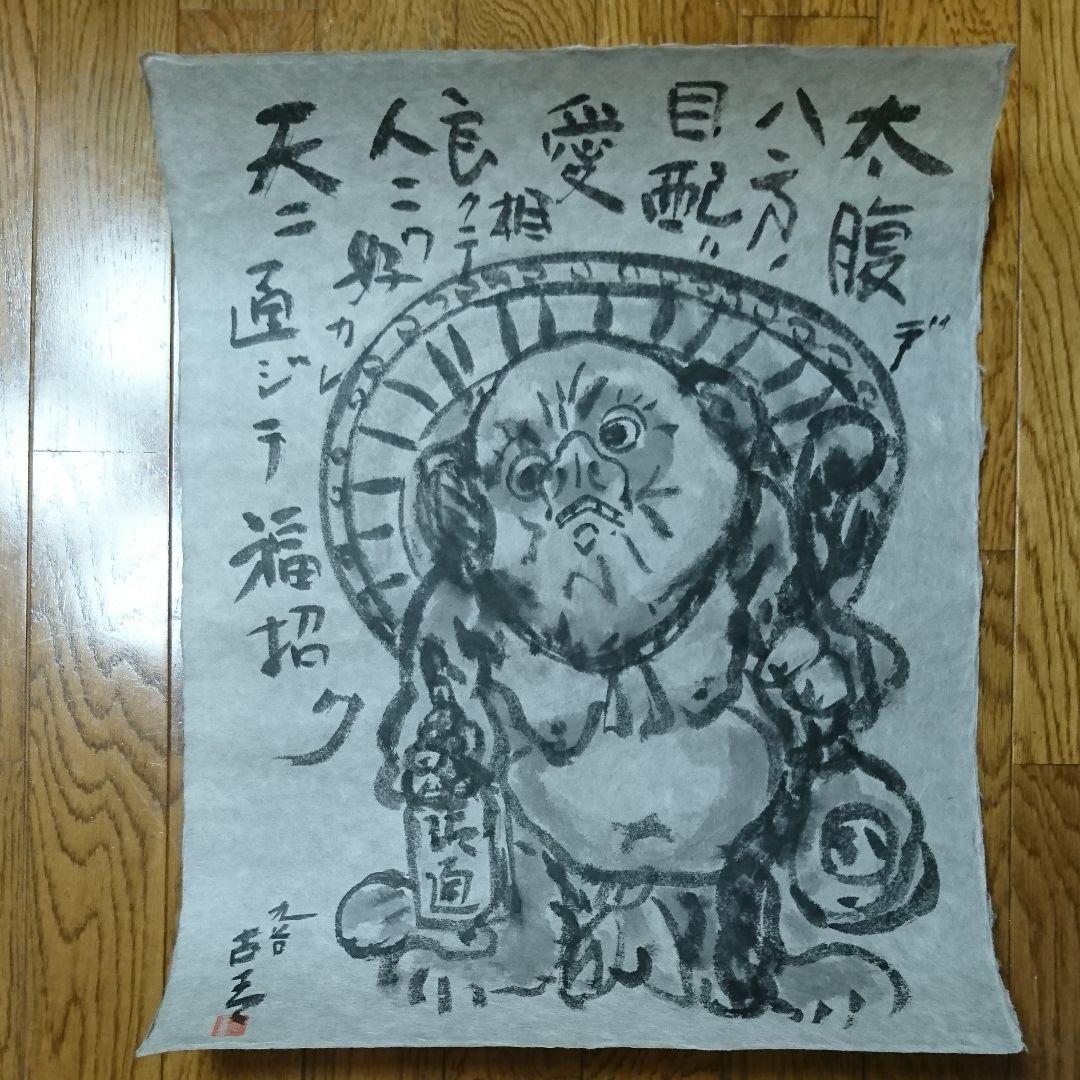 太腹デ
八方
目配リ
愛相
良クテ
人ニ
好カレ
天ニ通ジテ福招ク
通